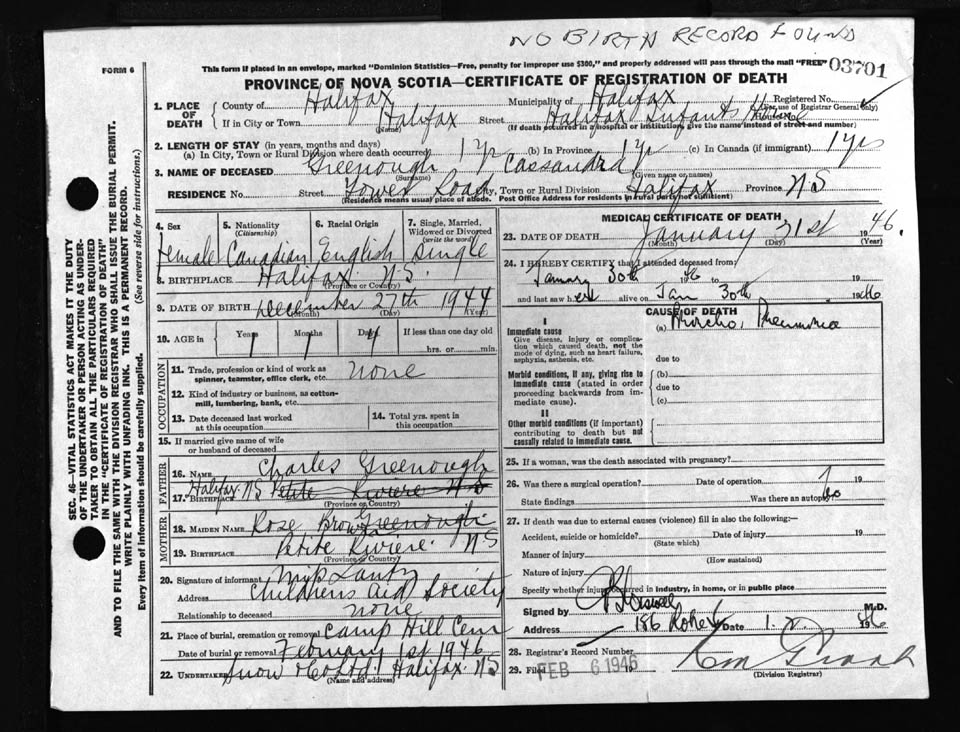 NO BIRTH RECORD FOUND
FORM 6
This form if placed in an envelope, marked "Dominion Statistics—Free, penalty for improper use $300," and properly addressed will pass through the mail "FREE"
03701
PROVINCE OF NOVA SCOTIA—CERTIFICATE OF REGISTRATION OF DEATH
1. PLACE OF DEATH
County of Halifax Municipality of Halifax Registered No.
(For use of Registrar General only)
If in City or Town Halifax Street Halifax Infants Home
(Name) (If death occurred in a hospital or institution, give the name instead of street and number)
2. LENGTH OF STAY (in years, months and days)
(a) In City, Town or Rural Division where death occurred 1 yr (b) In Province 1 yr (c) In Canada (if immigrant) 1 yr
3. NAME OF DECEASED Greenough Cassandra
(Surname) (Given name or names)
RESIDENCE No. Street Tower Road City, Town or Rural Division Halifax Province NS
(Residence means usual place of abode. Post Office Address for residents in rural parts not sufficient)
4. Sex Female
5. Nationality (Citizenship) Canadian
6. Racial Origin English
7. Single, Married, Widowed or Divorced (write the word) Single
8. BIRTHPLACE Halifax N.S.
(Province or Country)
9. DATE OF BIRTH December 27th 1944
(Month) (Day) (Year)
10. AGE in Years 1 Months 1 Days 4 If less than one day old
hrs. or min.
OCCUPATION
11. Trade, profession or kind of work as spinner, teamster, office clerk, etc. none
12. Kind of industry or business, as cotton-mill, lumbering, bank, etc.
13. Date deceased last worked at this occupation
14. Total yrs. spent in this occupation
15. If married give name of wife or husband of deceased
FATHER
16. NAME Charles Greenough
17. BIRTHPLACE Halifax NS Petite Riviere NS
MOTHER
18. MAIDEN NAME Rose Brown Greenough
19. BIRTHPLACE Petite Riviere NS
(Province or Country)
20. Signature of informant
Address Childrens Aid Society
Relationship to deceased none
21. Place of burial, cremation or removal Camp Hill Cem
Date of burial or removal February 1st 1946
22. UNDERTAKER Snow & Co Ltd. Halifax NS
(Name and address)
MEDICAL CERTIFICATE OF DEATH
23. DATE OF DEATH January 31st 1946.
(Month) (Day) (Year)
24. I HEREBY CERTIFY that I attended deceased from
January 30th 19
and last saw her alive on Jan 30th 1946
CAUSE OF DEATH
I
Immediate cause
Give disease, injury or complication which caused death, not the mode of dying, such as heart failure, asphyxia, asthenia, etc.
(a) Broncho Pneumonia
due to
Morbid conditions, if any, giving rise to immediate cause (stated in order proceeding backwards from immediate cause).
(b)
due to
(c)
II
Other morbid conditions (if important) contributing to death but not causally related to immediate cause.
25. If a woman, was the death associated with pregnancy?
26. Was there a surgical operation? Date of operation 19
State findings Was there an autopsy? No
27. If death was due to external causes (violence) fill in also the following:—
Accident, suicide or homicide? Date of injury 19
(State which)
Manner of injury
(How sustained)
Nature of injury
Specify whether injury occurred in industry, in home, or in public place
Signed by M.D.
Address 186 Date 1. 1946
28. Registrar's Record Number
29. Filed FEB 6 1946
(Division Registrar)
SEC. 46—VITAL STATISTICS ACT MAKES IT THE DUTY
OF THE UNDERTAKER OR PERSON ACTING AS UNDERTAKER TO OBTAIN ALL THE PARTICULARS REQUIRED
IN THE "CERTIFICATE OF REGISTRATION OF DEATH"
AND TO FILE THE SAME WITH THE DIVISION REGISTRAR WHO SHALL ISSUE THE BURIAL PERMIT.
WRITE PLAINLY WITH UNFADING INK. THIS IS A PERMANENT RECORD.
Every item of information should be carefully supplied. (See reverse side for instructions.)